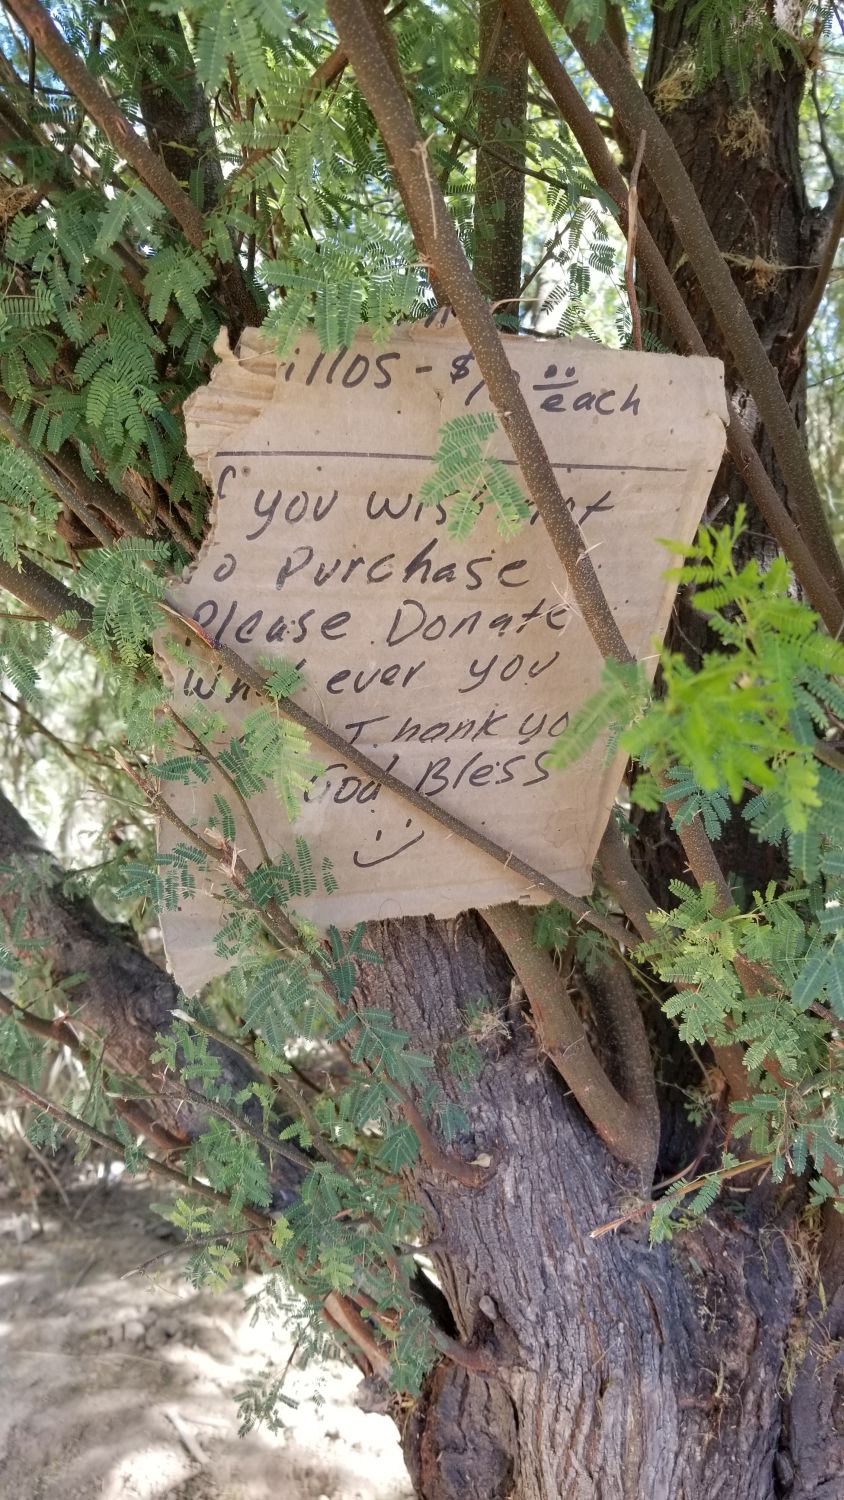 illos - $ each
f you
o Purchase
Please Donate
ever you
Thank yo
God Bless